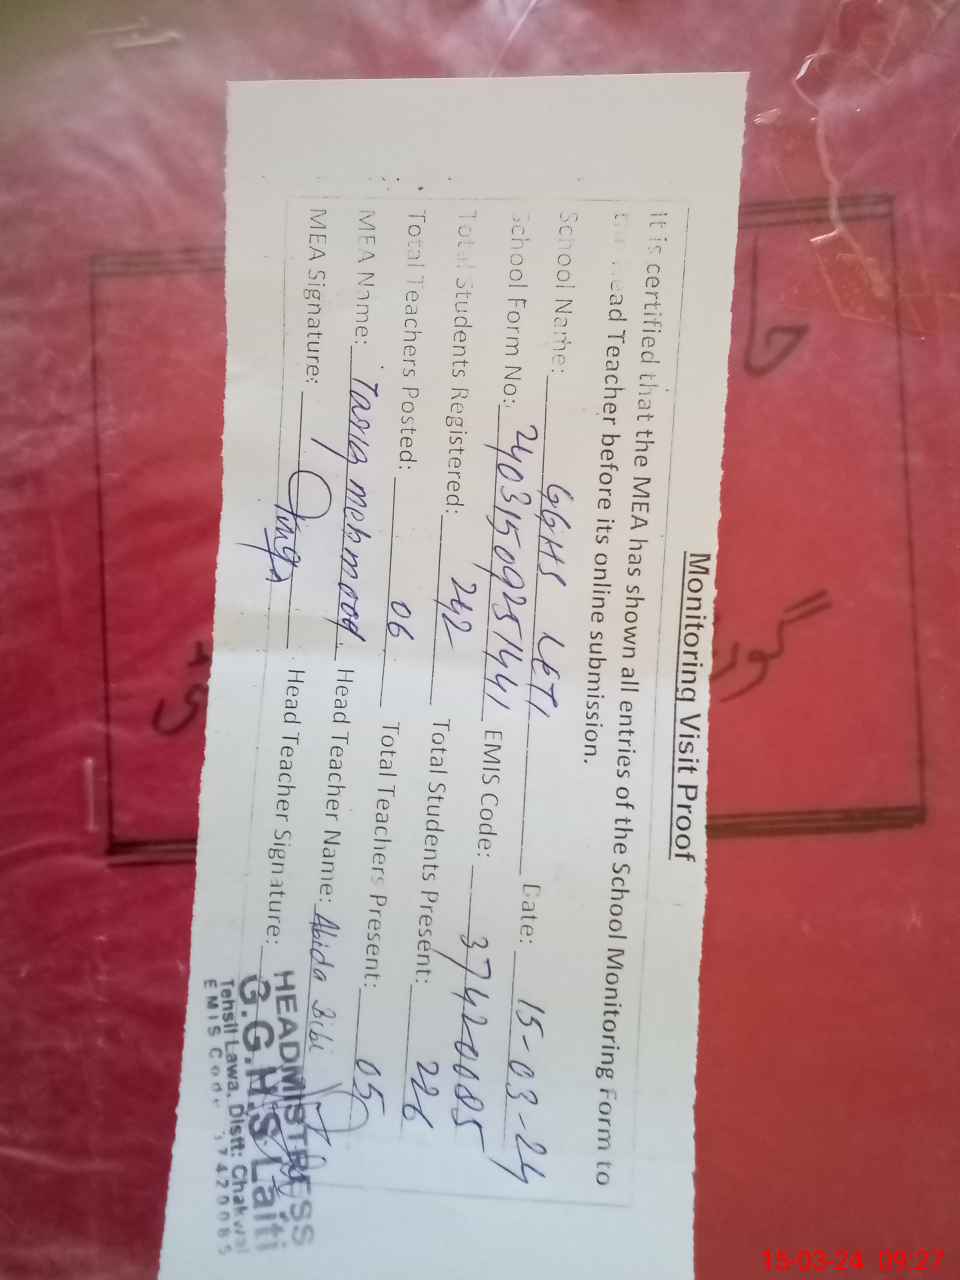 Monitoring Visit Proof
It is certified that the MEA has shown all entries of the School Monitoring Form to
the Head Teacher before its online submission.
School Name: GGHS LETI Date: 15-03-24
School Form No: 24031509251441 EMIS Code: 37420085
Total Students Registered: 242 Total Students Present: 226
Total Teachers Posted: 06 Total Teachers Present: 05
MEA Name: Tariq mehmood Head Teacher Name: Abida Bibi
MEA Signature: Head Teacher Signature:
HEADMISTRESS
G.G.H.S Laiti
Tehsil Lawa, Distt: Chakwal
EMIS Code 37420085
15-03-24 09:27